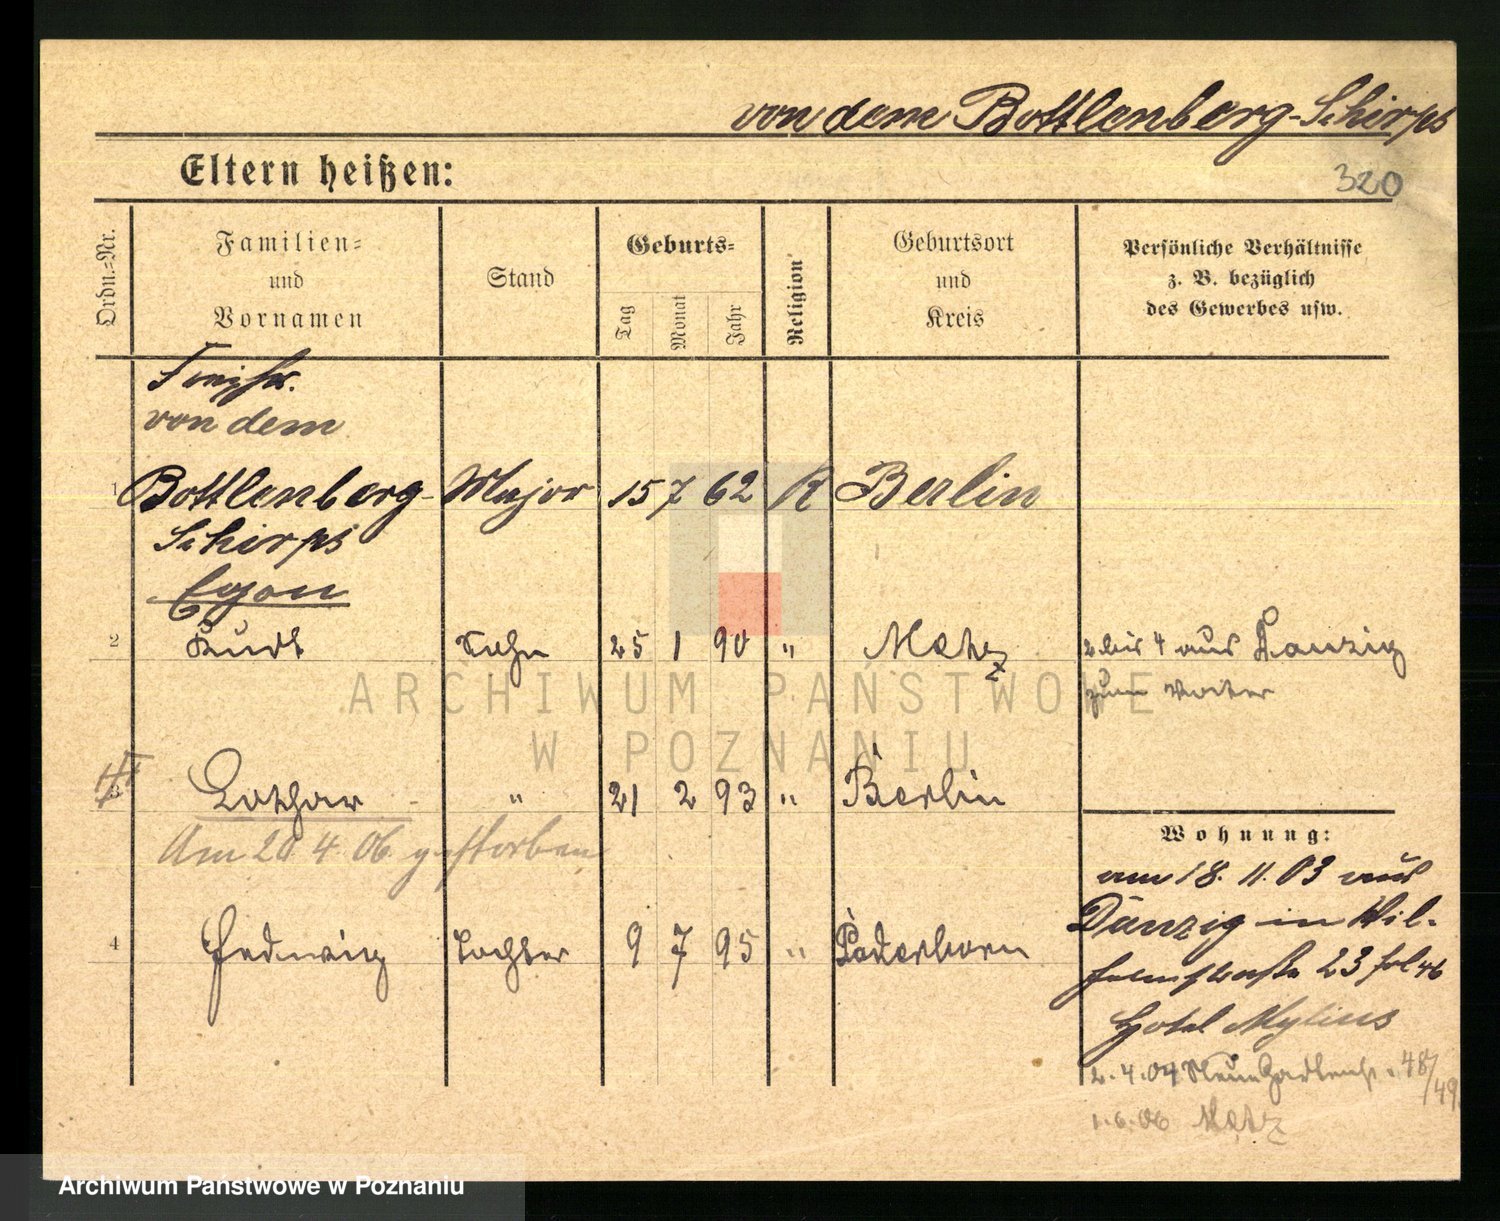 von dem Bottlenberg-Schirps
Eltern heißen:
320
Ordn.-Nr.
Familien-
und
Vornamen
Stand
Geburts-
Tag
Monat
Jahr
Religion
Geburtsort
und
Kreis
Persönliche Verhältnisse
z. B. bezüglich
des Gewerbes usw.
Freihr.
von dem
1 Bottlenberg- Major 15 7 62 R Berlin
Schirps
Egon
2 Kurt Sohn 25 1 90 " Metz 2 bis 4 aus Danzig
zum Vater
3 Lothar " 21 2 93 " Berlin
Am 20 4 06 gestorben
4 Hedwig Tochter 9 7 95 " Paderborn
Wohnung:
am 18. 11. 03 aus
Danzig in Wil-
helmstraße 23 fol 46
Hotel Mylius
2. 4. 04 Neue Gartenst. 48/
49.
1. 6. 06 Metz
ARCHIWUM PAŃSTWOWE
W POZNANIU
Archiwum Państwowe w Poznaniu